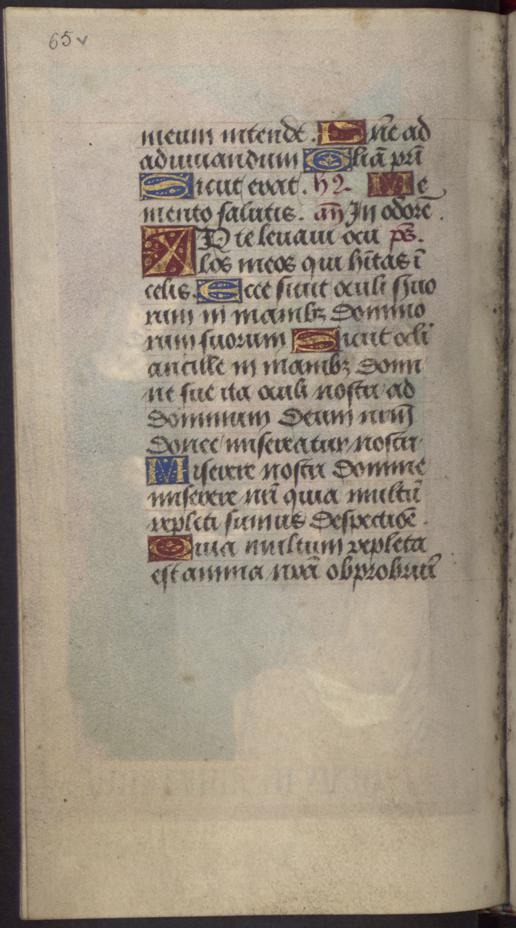 65v
meum intende. Dne ad
adiuuandum Gliã pri
Sicut erat. h2. Me
mento salutis. añ In odore.
AD te leuaui ocu ps.
los meos qui hitas ĩ
celis. Ecce sicut oculi seruo
rum in manibꝫ domino
rum suorum Sicut ocli
ancille in manibꝫ domi
ne sue ita oculi nostri ad
dominum deum nrm̃
donec misereatur nostri
Miserere nostri domine
miserere nrĩ quia multũ
repleti sumus despectiõe.
Quia multum repleta
est anima nrã obprobriũ